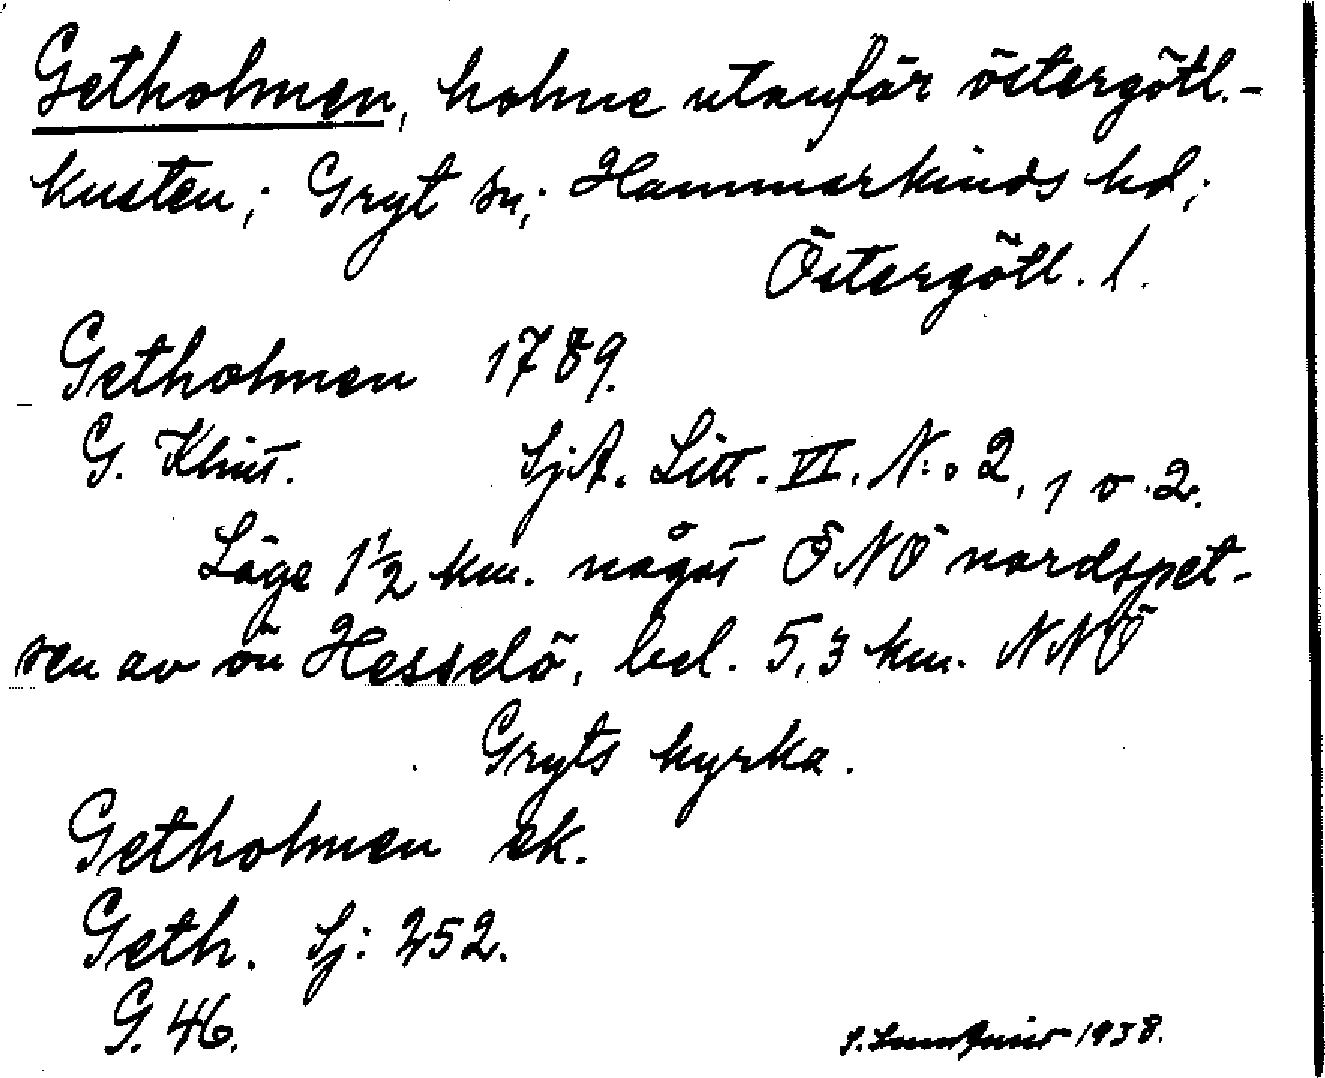 Getholmen, holme utanför östergötl.-
kusten; Gryt sn; Hammarkinds hd;
Östergötl. l.
Getholmen 1789.
G. Klint. SjA. Litt. VI. N:o 2, 1 o. 2.
Läge 1½ km. något ÖNÖ nordspet-
sen av ön Hesselö, bel. 5,3 km. NNÖ
Gryts kyrka.
Getholmen ek.
Geth. Sj: 252.
G. 46.
S. 1938.